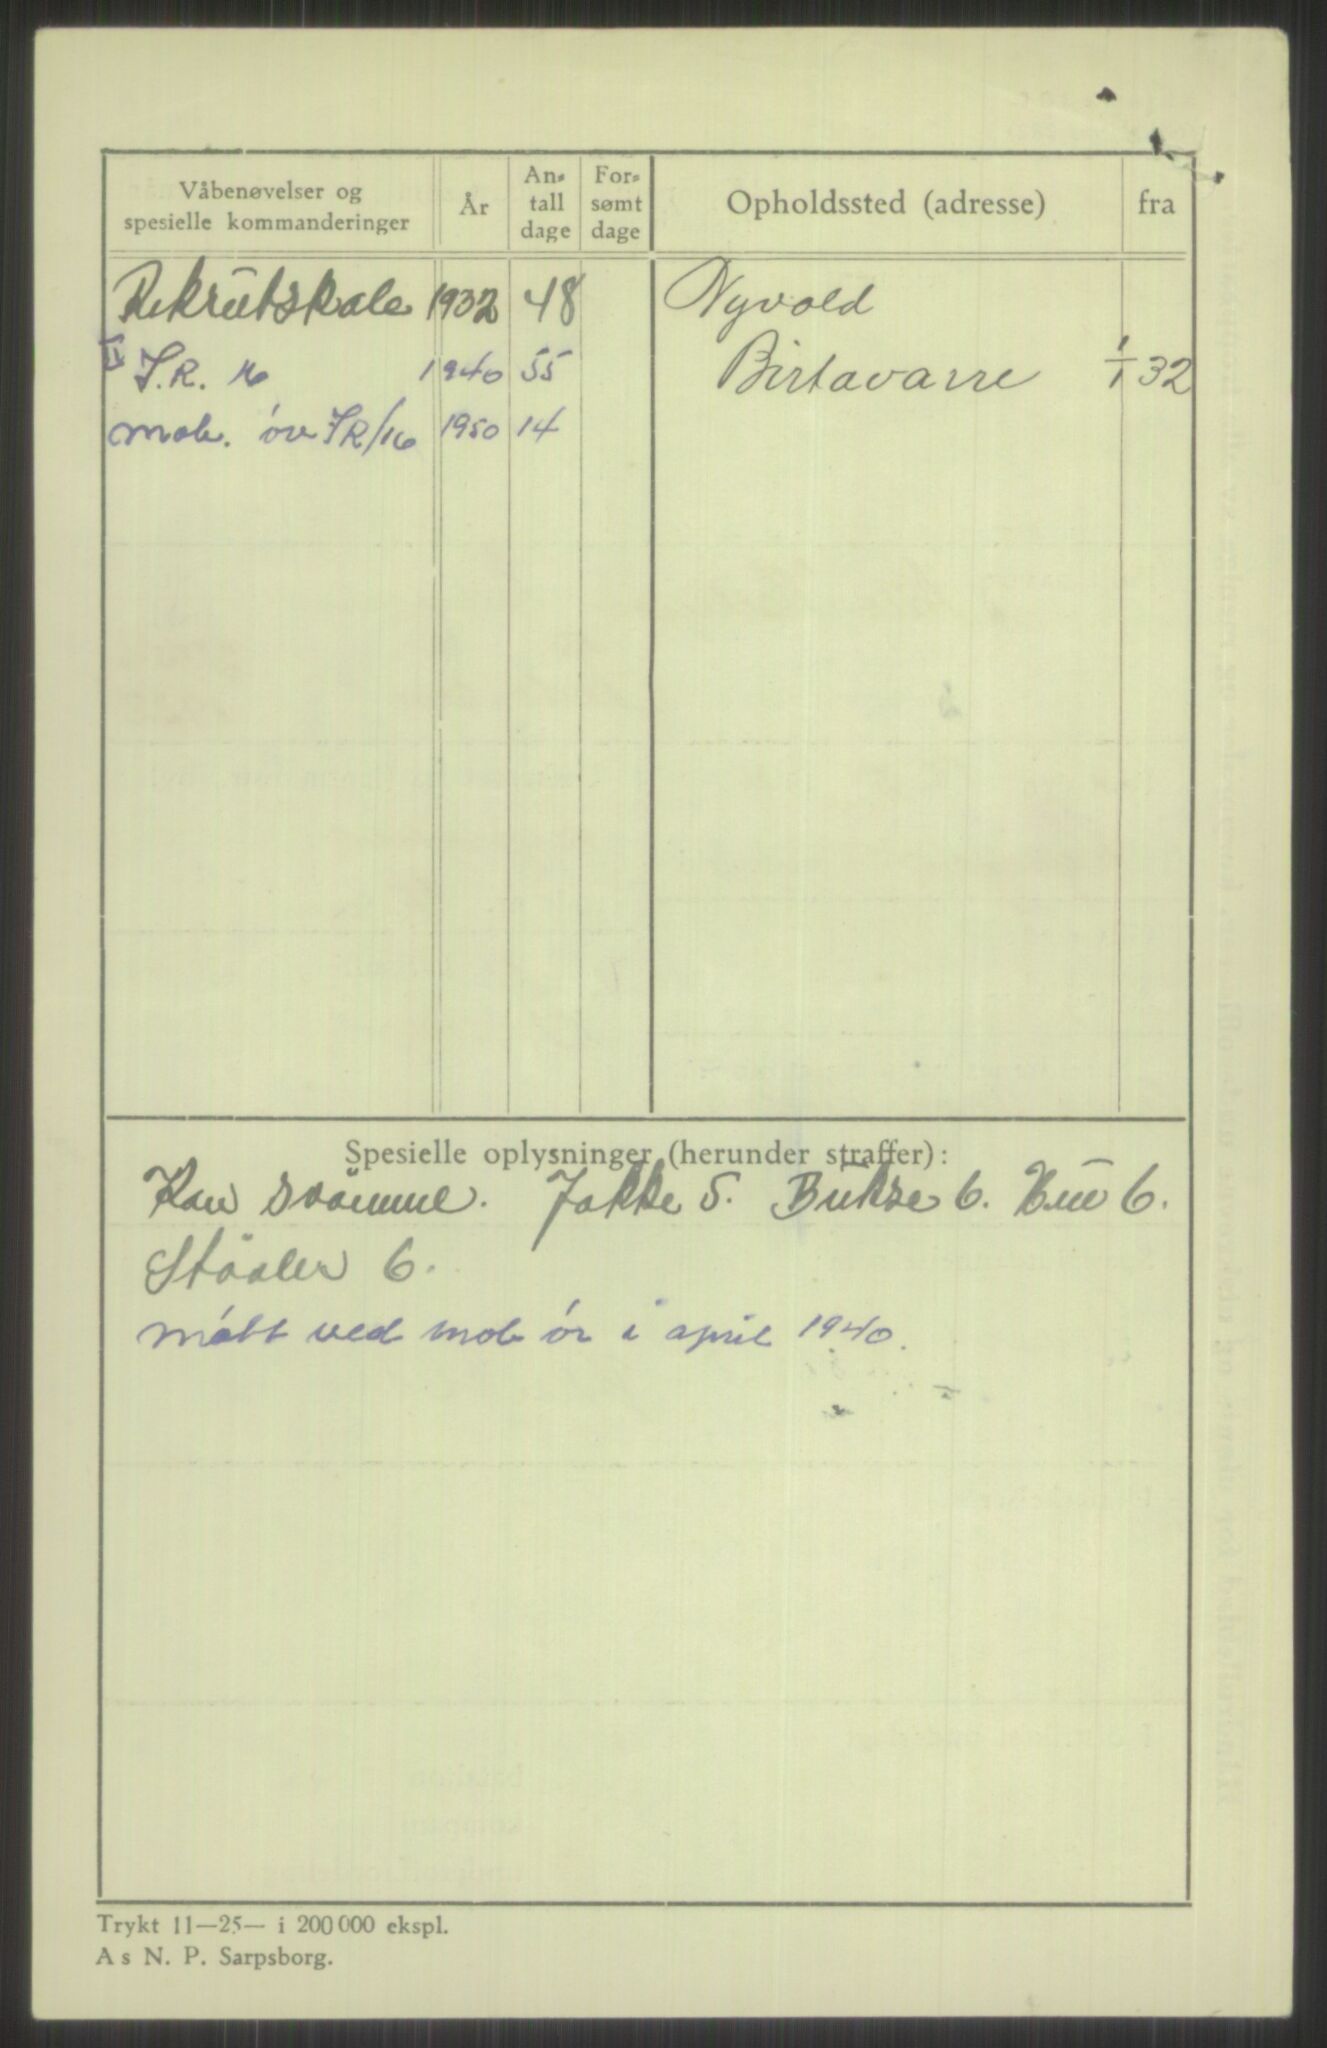 Våbenøvelser og
spesielle kommanderinger
År
An-
tall
dage
For-
sømt
dage
Opholdssted (adresse)
fra
Rekrutskole 1932 48
Nyvold
II I.R. 16 1940 55
Birtavarre 1/1 32
mob. öv IR/16 1950 14
Spesielle oplysninger (herunder straffer):
Kan svömme. Jakke 5. Bukse 6. Hue 6.
Stövler 6.
Møtt ved mob öv i april 1940.
Trykt 11—25— i 200 000 ekspl.
As N. P. Sarpsborg.